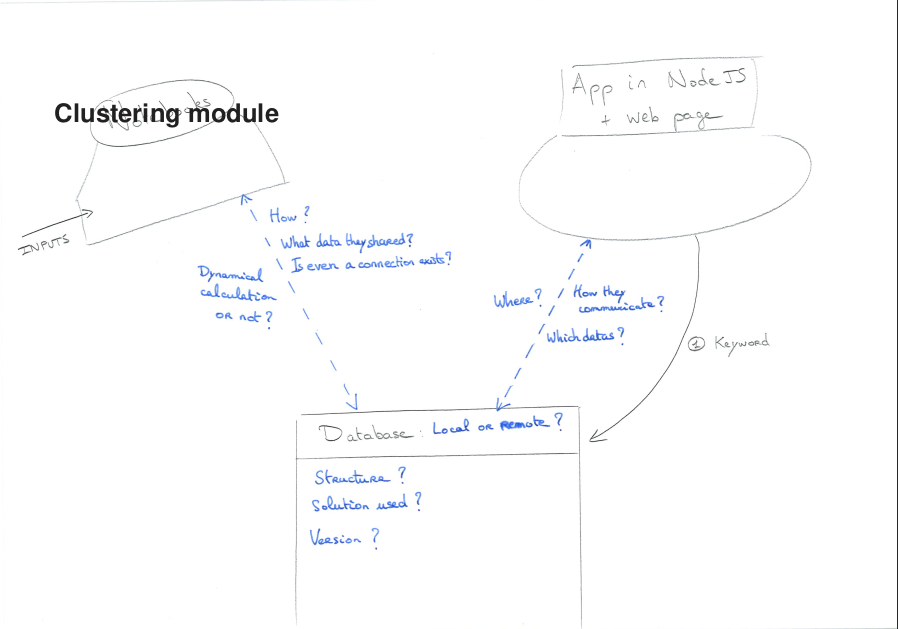 Clustering module
App in NodeJS
+ web page
INPUTS
How?
What data they shared?
Is even a connection exists?
Dynamical
calculation
OR not?
Where?
How they
communicate?
Which datas?
1 Keyword
Database : Local or remote?
Structure?
Solution used?
Version?